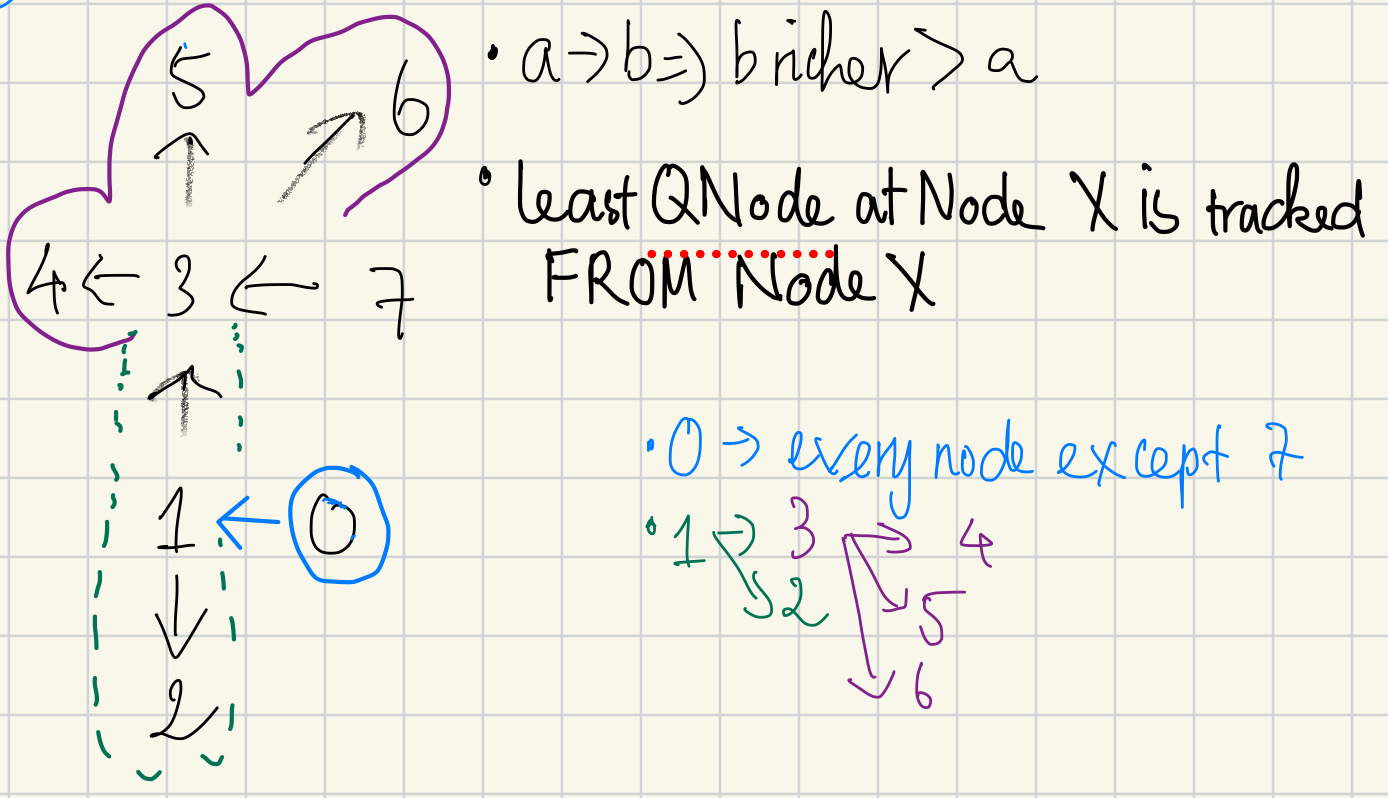 5
6
4 ← 3 ← 7
1 ← 0
2
• a → b ⇒ b richer > a
• least QNode at Node X is tracked
FROM Node X
• 0 → every node except 7
• 1 → 3 → 4
2 5
6